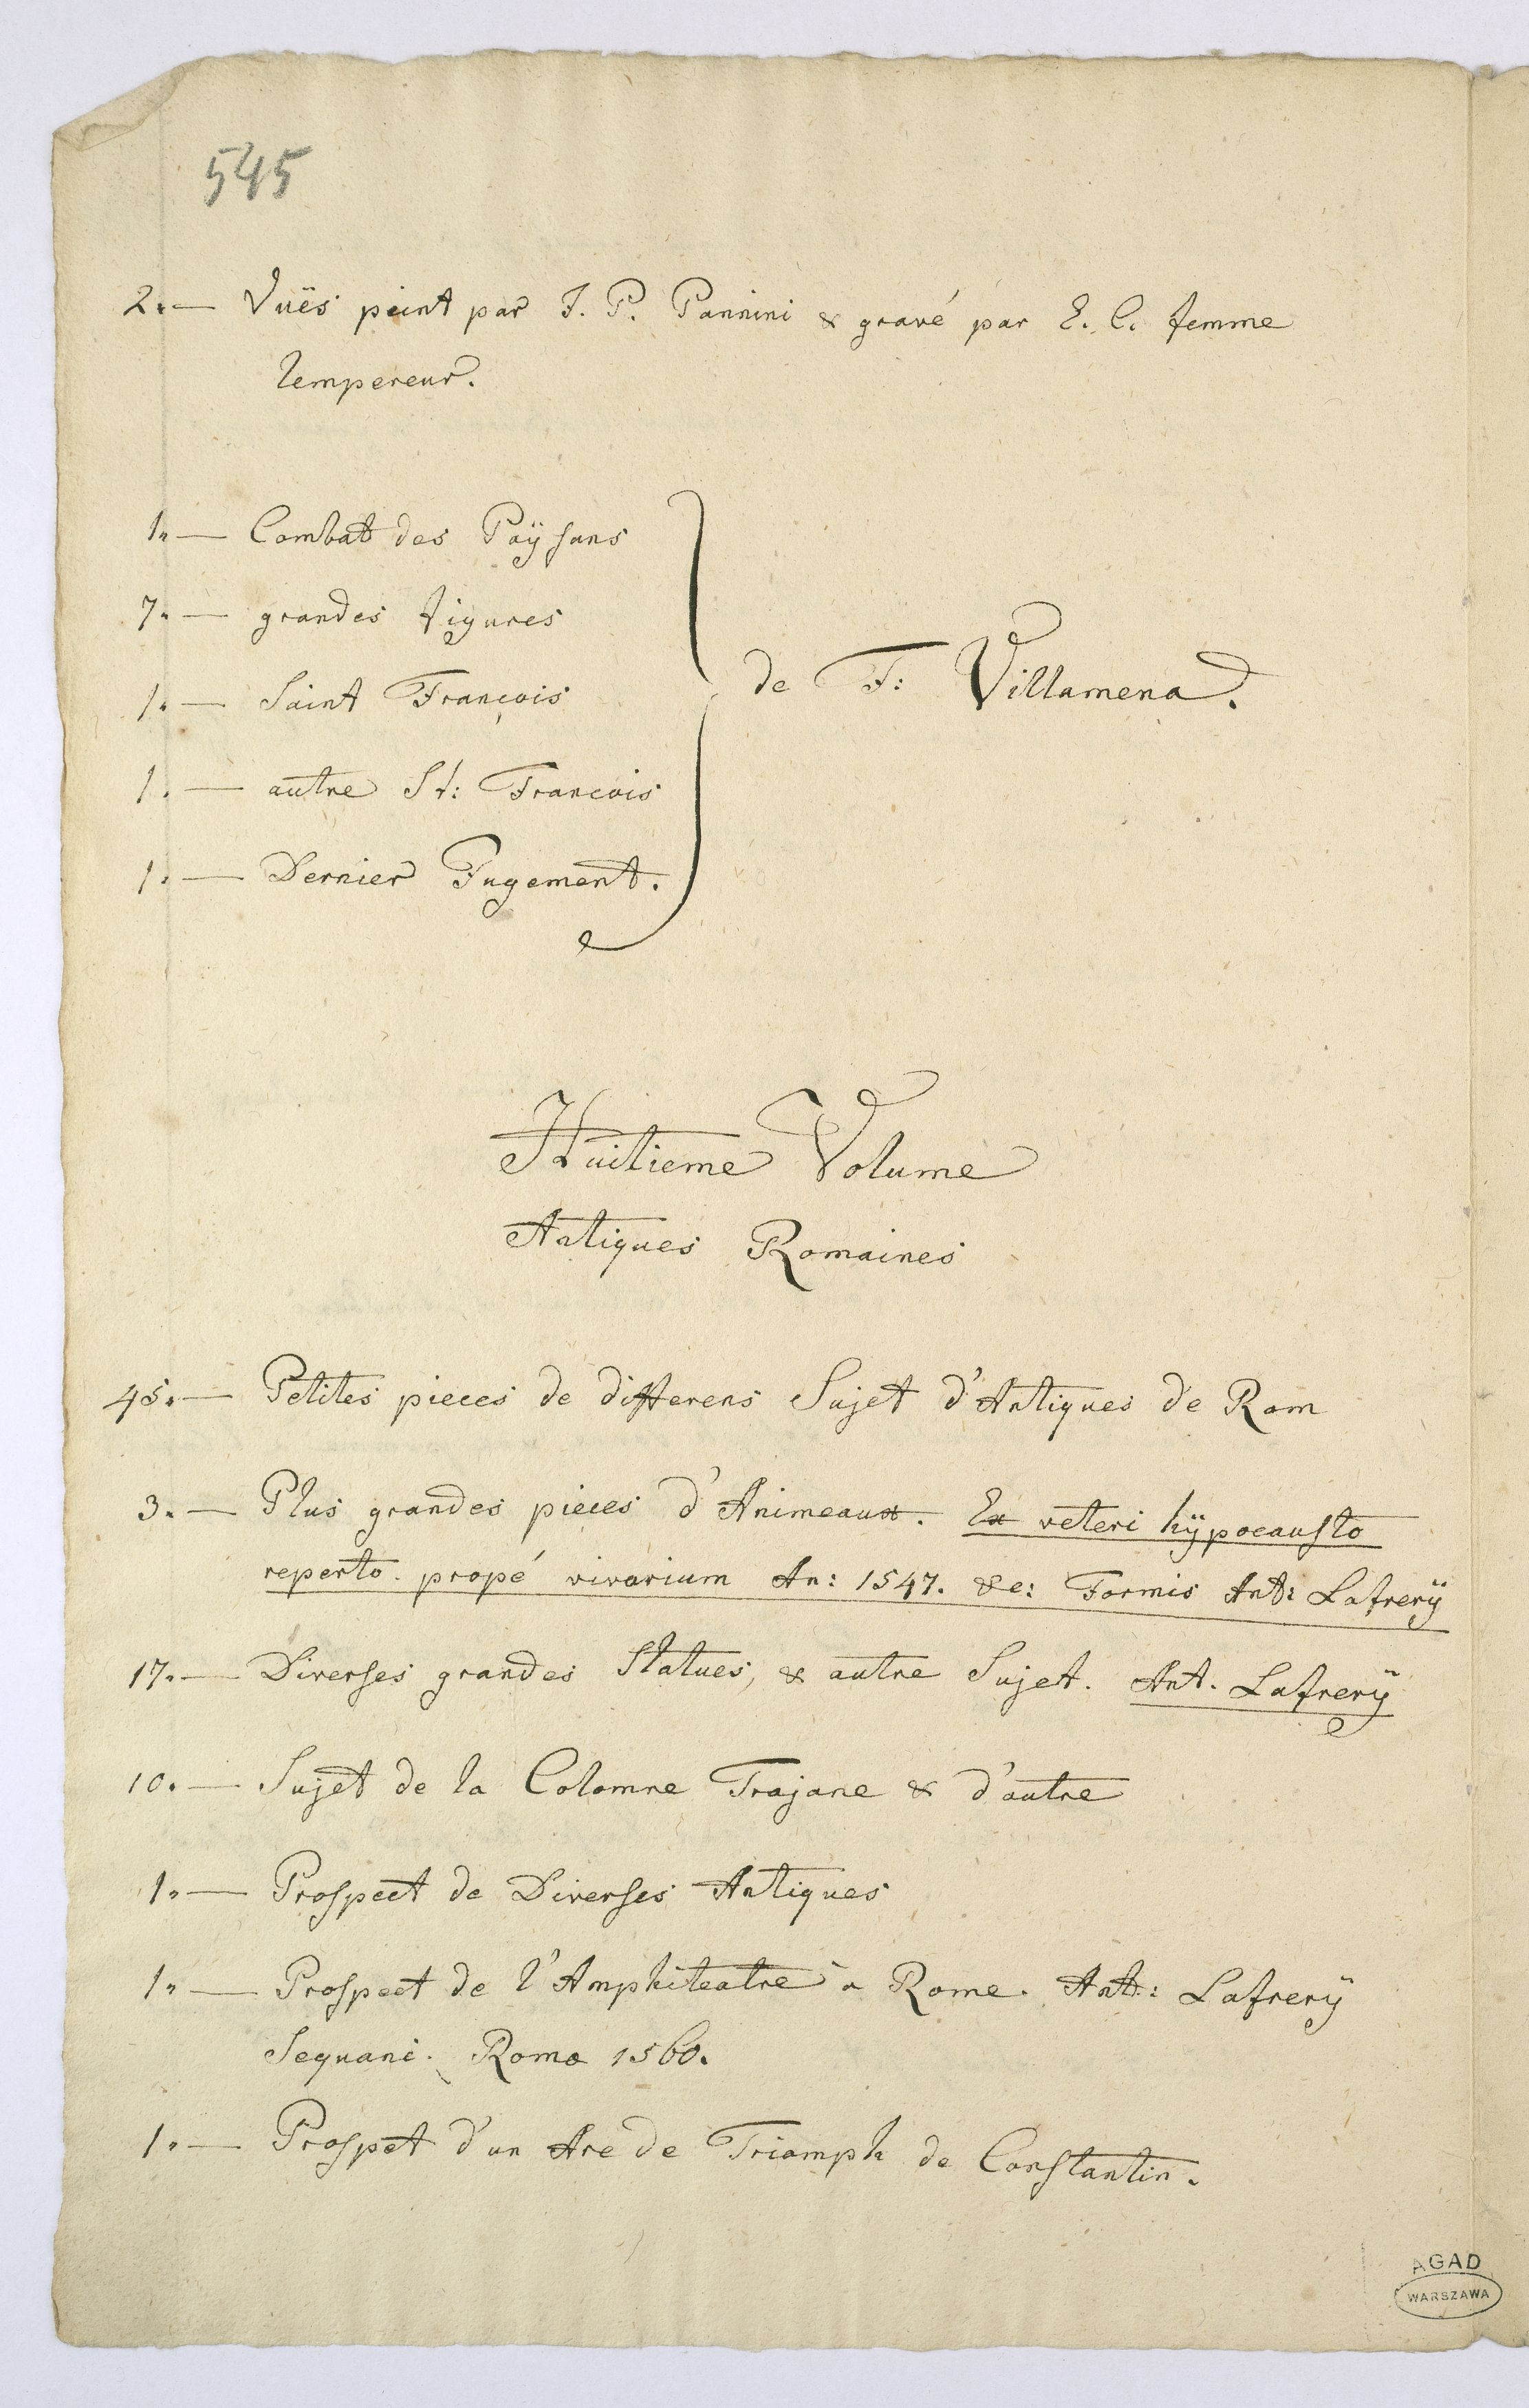 545
2. — Vuës peint par J. P. Pannini & gravé par E. C. femme
Lempereur.
1. — Combat des Païsans
7. — grandes figures
1. — Saint François
1. — autre St: Francois
1. — Dernier Jugement.
de F: Villamena.
Huitieme Volume
Antiques Romaines
45. — Petites pieces de differens Sujet d'Antiques de Rom
3. — Plus grandes pieces d'Animeaux. Ex veteri hÿpocausto
reperto. propé vivarium An: 1547. &c: Formis Ant: Lafrerÿ
17. — Diverses grandes Statues, & autre Sujet. Ant. Lafrerÿ
10. — Sujet de la Colomne Trajane & d'autre
1. — Prospect de Diverses Antiques
1. — Prospect de l'Amphiteatre à Rome. Ant: Lafrerÿ
Sequani. Roma 1560.
1. — Prospet d'un Arc de Triomph de Constantin.
AGAD
WARSZAWA